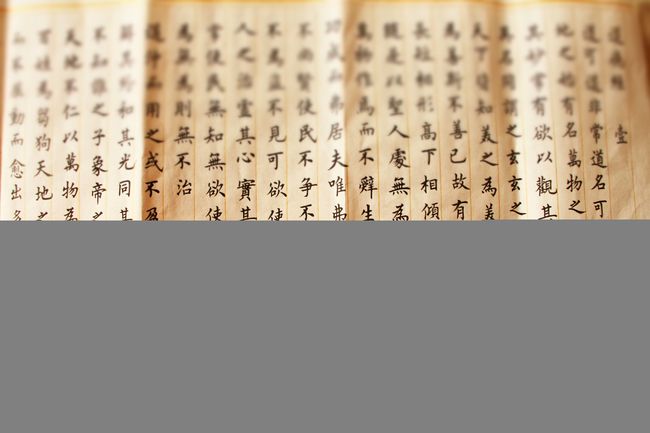 道德經 壹
道可道非常道名可
地之始有名萬物之
其妙常有欲以觀其
異名同謂之玄玄之
天下皆知美之為美
為善斯不善已故有
長短相形高下相傾
隨是以聖人處無為
萬物作焉而不辭生
功成而弗居夫唯弗
不尚賢使民不爭不
不為盜不見可欲使
人之治虛其心實其
常使民無知無欲使
為無為則無不治
道沖而用之或不盈
解其紛和其光同其
不知誰之子象帝之
天地不仁以萬物為
百姓為芻狗天地之
而不屈動而愈出多